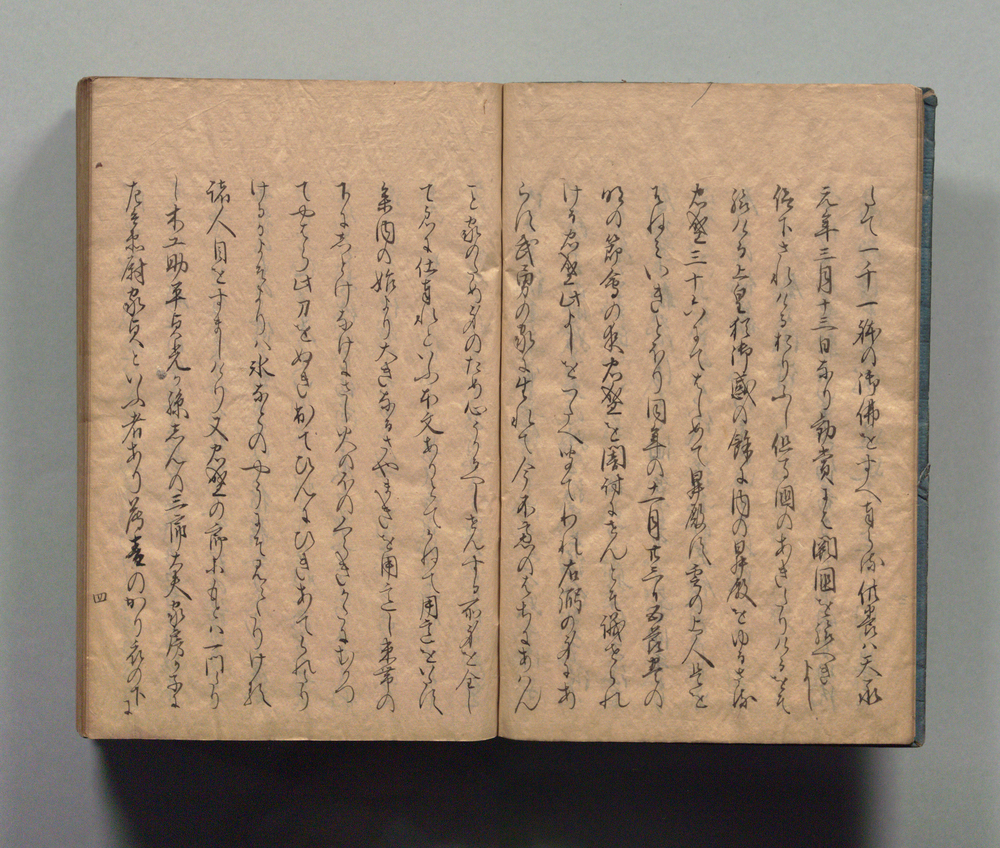 たて一千一躰の御佛をすへ奉らる供養ハ天承
元年三月十三日なり勧賞にハ闕國を給へきよし
仰下されけるおりふし但馬國のあきたりけるをそ
給ける上皇猶御感の餘に内の昇殿をゆるさる
忠盛三十六にてはしめて昇殿す雲の上人是を
そねミいきとをり同年の十一月廿三日五节豊の
明の節會の夜忠盛を闇討にせんとそ議せられ
ける忠盛此よしをつたへ聞てわれ右筆の身にあ
らす武勇の家に生れて今不慮のはちにあハん
こと家のため身のため心うかるへしせんする所身を全し
て君に仕奉れといふ本文ありとてかねて用意をいたす
参内の始より大きなるさやまきを用意し束帯の
下にしとけなけにさし火のほのくらきかたにむかつ
てやはら此刀をぬき出てひんにひきあてられたり
けるかよそよりハ氷なとのやうにそみえたりける
諸人目をすましけり又忠盛の郎等もとハ一門たり
し木工助平貞光か孫しんの三郎大夫家房か子に
左兵衛尉家貞といふ者あり薄青のかり衣の下に
四